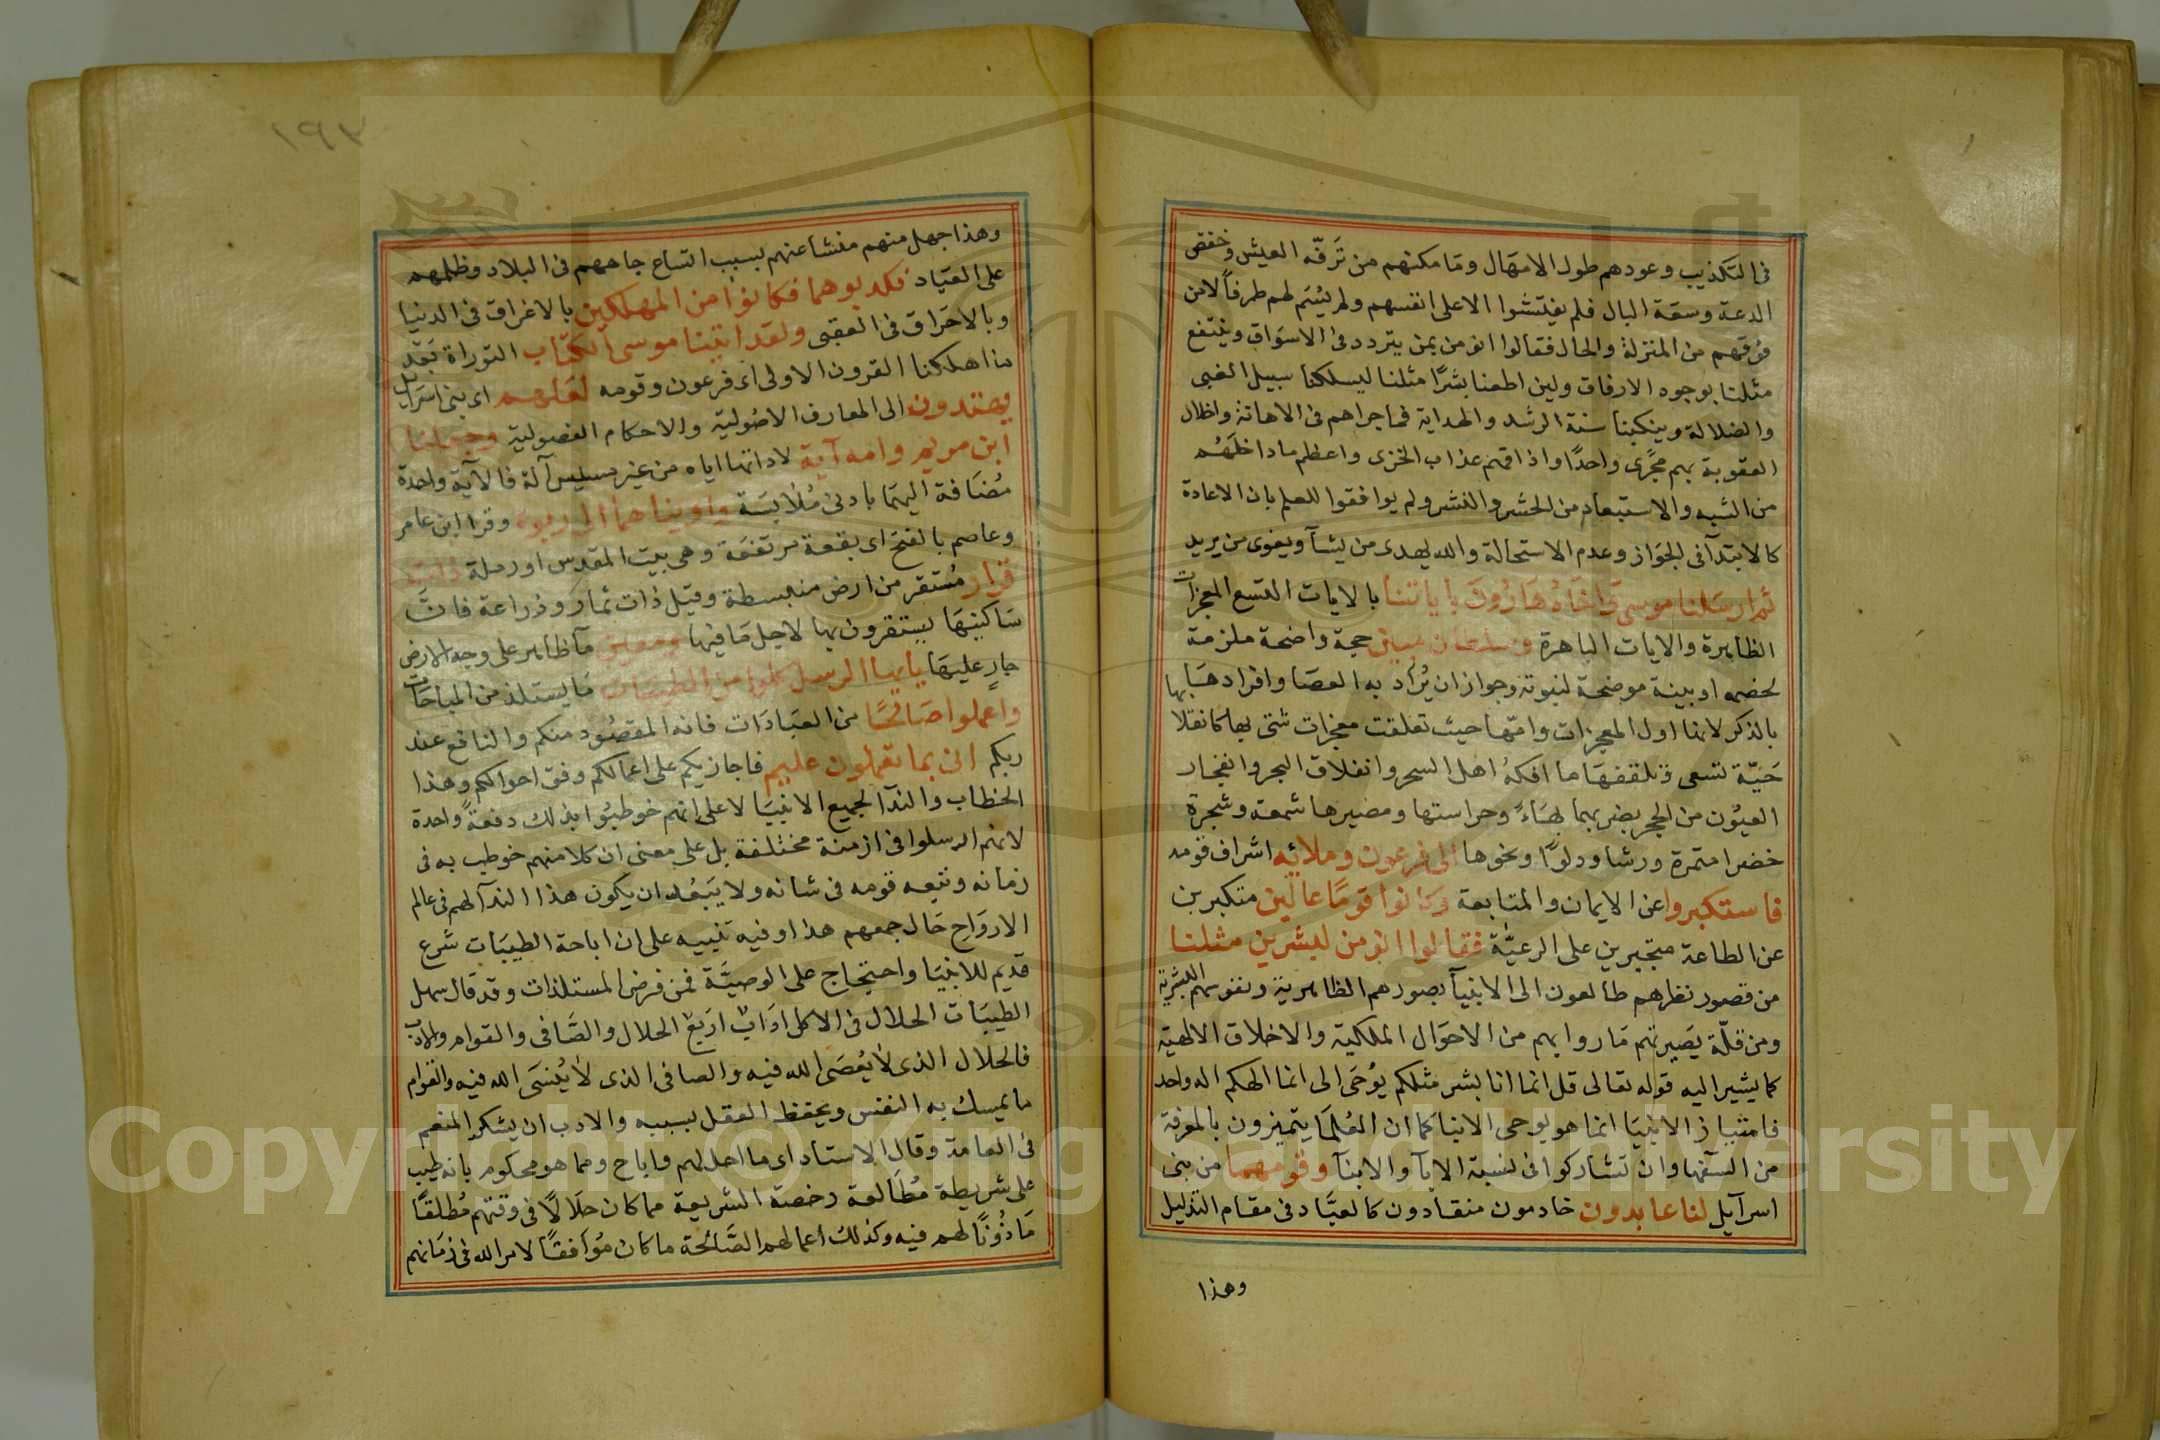 فى التكذيب وعودهم طول الامهال وما مكنهم من ترفه العيش وخفض
الدعة وسعة البال فلم يفتشوا الا على انفسهم ولم يشم لهم طرفا لان
فوقهم من المنزلة والحال فقالوا انؤمن بمن يتردد فى الاسواق وينتفع
مثلنا بوجوه الارفاق ولين اطعنا بشرا مثلنا ليسلكنا سبيل الغى
والضلالة وينكبنا سنة الرشد والهداية فما جراهم فى الاهانة واظلال
العقوبة بهم مجرى واحدا واذاقهم عذاب الخزى واعظم ما داخلهم
من الشبه والاستبعاد من الحشر والنشر ولم يوافقوا للعلم بان الاعادة
كالابتدآ فى الجواز وعدم الاستحالة والله يهدى من يشآ ويغوى من يريد
ثم ارسلنا موسى واخاه هارون باياتنا بالايات التسع المعجزات
الظاهرة والايات الباهرة وسلطان مبين حجة واضحة ملزمة
لخصمه او بينة موضحة لنبوته وجواز ان يراد به العصا وافرادها
بالذكر لانها اول المعجزات وامها حيث تعلقت معجزات شتى بها كانقلابها
حية تسعى وتلقفها ما افكه اهل السحر وانفلاق البحر وانفجار
العيون من الحجر بضربهما بها وحراستها ومصيرها شمعة وشجرة
خضرا مثمرة ورشا ودلوا ونحوها الى فرعون وملائه اشراف قومه
فاستكبروا عن الايمان والمتابعة وكانوا قوما عالين متكبرين
عن الطاعة متجبرين على الرعية فقالوا انؤمن لبشرين مثلنا
من قصور نظرهم طالعون الى الانبيآ بصورهم الظاهرية ونفوسهم البشرية
ومن قلة بصيرتهم ما روا بهم من الاحوال الملكية والاخلاق الالهية
كما يشير اليه قوله تعالى قل انما انا بشر مثلكم يوحى الى انما الهكم اله واحد
فامتياز الانبيا انما هو بوحى الانبا كما ان العلما يتميزون بالمعرفة
من السفها وان تشاركوا فى نسبة الابآ والابنآ وقومهما من بنى
اسرآيل لنا عابدون خادمون منقادون كالعباد فى مقام التذليل
وهذا
١٩٧
وهذا جهل منهم منشا عنهم بسبب اتساع جاههم فى البلاد وظلمهم
على العباد فكذبوهما فكانوا من المهلكين بالاغراق فى الدنيا
وبالاحراق فى العقبى ولقد اتينا موسى الكتاب التوراة بعد
ما اهلكنا القرون الاولى اى فرعون وقومه لعلهم اى بنى اسرايل
يهتدون الى المعارف الاصولية والاحكام الفصولية وجعلنا
ابن مريم وامه آية لادتها اياه من غير مسيس آلة فالآية واحدة
مضافة اليهما بادنى ملابسة واويناهما الى ربوة وقرا ابن عامر
وعاصم بالفتح اى بقعة مرتفعة وهى بيت المقدس او رملة ذات
قرار مستقر من ارض منبسطة وقيل ذات ثمار وزراعة فان
ساكنيها يستقرون بها لاجل ما فيها ومعين مآ ظاهر على وجه الارض
جار عليها يايها الرسل كلوا من الطيبات ما يستلذ من المباحات
واعملوا صالحا من العبادات فانه المقصود منكم والنافع عند
ربكم انى بما تعملون عليم فاجازيكم على اعمالكم وفق احوالكم وهذا
الخطاب والندآ لجميع الانبيا لا على انهم خوطبوا بذلك دفعة واحدة
لانهم ارسلوا فى ازمنة مختلفة بل على معنى ان كلا منهم خوطب به فى
زمانه وتبعه قومه فى شانه ولا يبعد ان يكون هذا الندآ لهم فى عالم
الارواح حال جمعهم هذا وفيه تنبيه على ان اباحة الطيبات شرع
قديم للانبيا واحتجاج على الوصية فمن فرض المستلذات وقد قال سهل
الطيبات الحلال فى الاكل اداب اربع الحلال والصافى والقوام والادب
فالحلال الذى لا يعصى الله فيه والصافى الذى لا ينسى الله فيه والقوام
ما يمسك به النفس ويحفظ العقل بسببه والادب ان يشكر المنعم
فى العامة وقال الاستاد اى ما احل لهم واباح ومما هو محكوم بانه طيب
على شريطة مطالعة رخصة الشريعة مما كان حلالا فى وقتهم مطلقا
ماذونا لهم فيه وكذلك اعمالهم الصالحة ما كان موافقا لامر الله فى زمانهم
Copyright © King Saud University